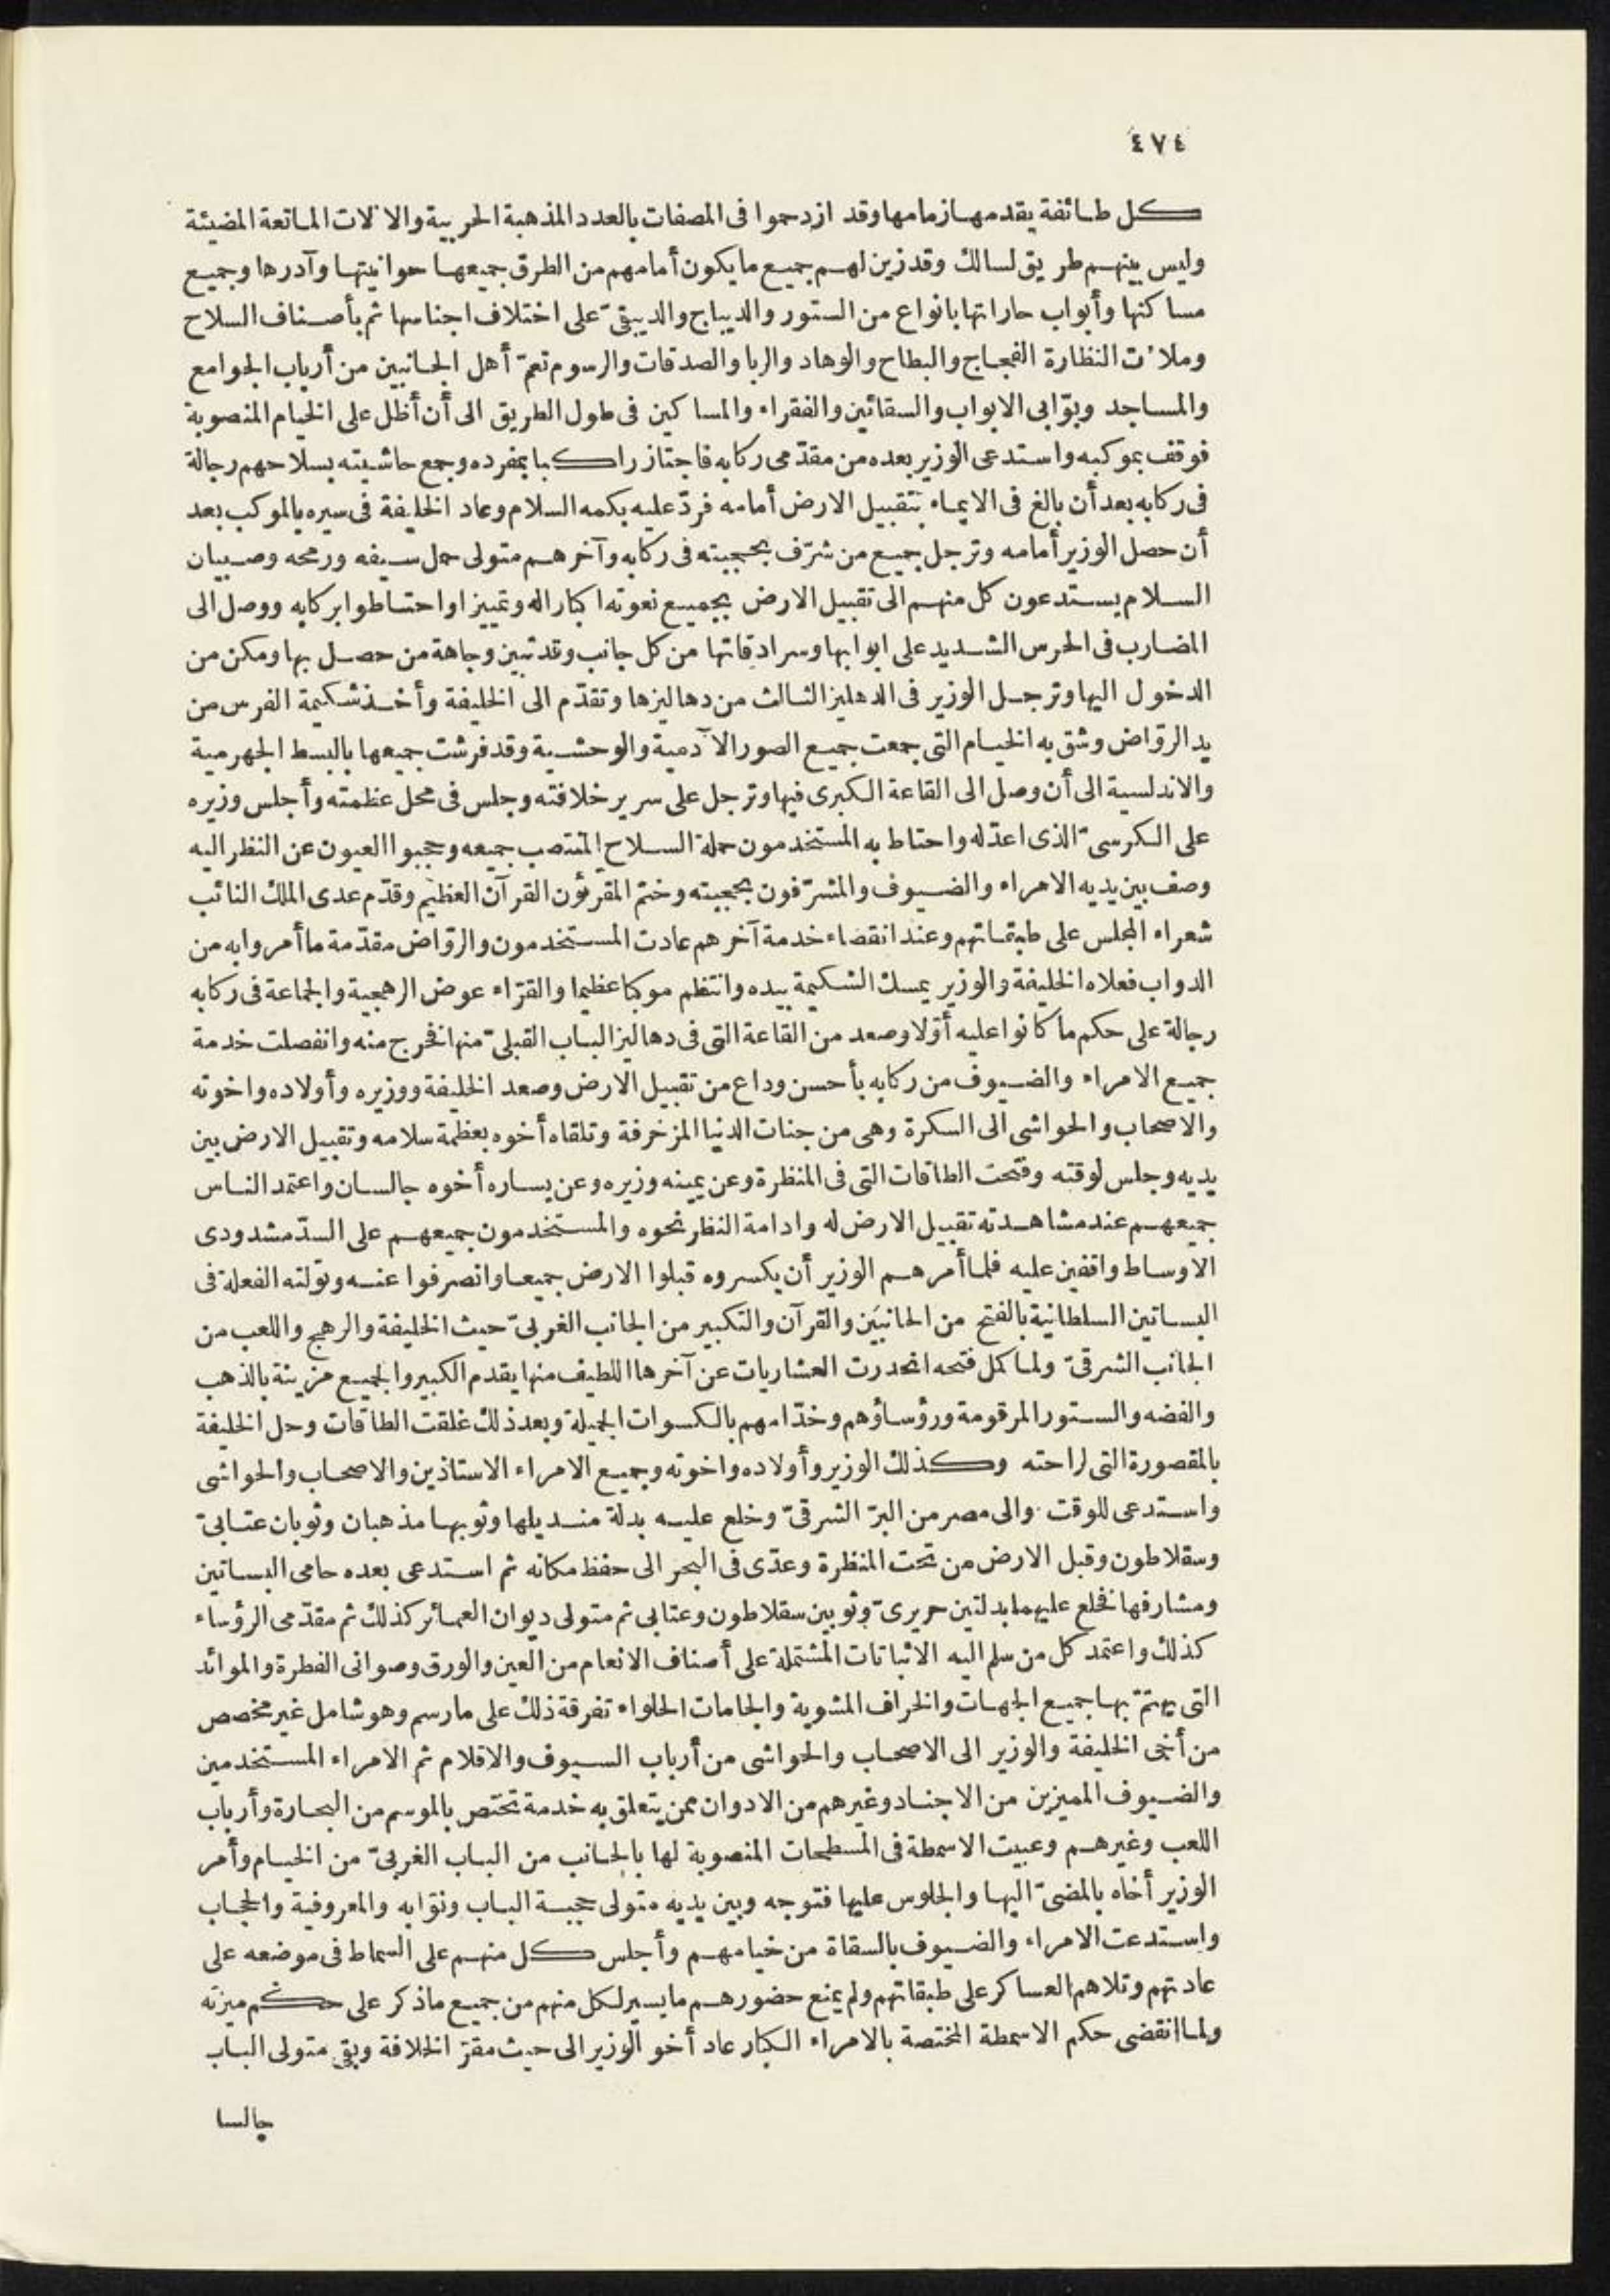 ٤٧٤
كل طائفة يقدمها زمامها وقد ازدحموا فى المصفات بالعدد المذهبة الحربية والالات الماتعة المضيئة
وليس بينهم طريق لسالك وقد زين لهم جميع ما يكون أمامهم من الطرق جميعها حوانيتها وآدرها وجميع
مساكنها وأبواب حاراتها بانواع من الستور والديباج والديبقىّ على اختلاف اجناسها ثم بأصناف السلاح
وملأت النظارة الفجاج والبطاح والوهاد والربا والصدقات والرسوم تعمّ أهل الجانبين من أرباب الجوامع
والمساجد وبوّابى الابواب والسقائين والفقراء والمساكين فى طول الطريق الى أن أظل على الخيام المنصوبة
فوقف بموكبه واستدعى الوزير بعده من مقدّمى ركابه فاجتاز راكبا بمفرده وجمع حاشيته بسلاحهم رجالة
فى ركابه بعد أن بالغ فى الايماء بتقبيل الارض أمامه فردّ عليه بكمه السلام وعاد الخليفة فى سيره بالموكب بعد
أن حصل الوزير أمامه وترجل جميع من شرّف بحجبيته فى ركابه وآخرهم متولى حمل سيفه ورمحه وصبيان
السلام يستدعون كل منهم الى تقبيل الارض بجميع نعوته اكبارا له وتمييزا واحتاطوا بركابه ووصل الى
المضارب فى الحرس الشديد على ابوابها وسرادقاتها من كل جانب وقد تبين وجاهة من حصل بها ومكن من
الدخول اليها وترجل الوزير فى الدهليز الثالث من دهاليزها وتقدّم الى الخليفة وأخذ شكيمة الفرس من
يد الروّاض وشق به الخيام التى جمعت جميع الصور الآدمية والوحشية وقد فرشت جميعها بالبسط الجهرمية
والاندلسية الى أن وصل الى القاعة الكبرى فيها وترجل على سرير خلافته وجلس فى محل عظمته وأجلس وزيره
على الكرسىّ الذى اعدّ له واحتاط به المستخدمون حملة السلاح المنتصب جميعه وحجبوا العيون عن النظر اليه
وصف بين يديه الامراء والضيوف والمشرّفون بحجبيته وختم المقرئون القرآن العظيم وقدّم عدى الملك النائب
شعراء المجلس على طبقاتهم وعند انقضاء خدمة آخرهم عادت المستخدمون والروّاض مقدّمة ما أمروا به من
الدواب فعلاه الخليفة والوزير يمسك الشكيمة بيده وانتظم موكبا عظيما والقرّاء عوض الرهجية والجماعة فى ركابه
رجالة على حكم ما كانوا عليه أوّلا وصعد من القاعة التى فى دهاليز الباب القبلىّ منها فخرج منه وانفصلت خدمة
جميع الامراء والضيوف من ركابه بأحسن وداع من تقبيل الارض وصعد الخليفة ووزيره وأولاده واخوته
والاصحاب والحواشى الى السكرة وهى من جنات الدنيا المزخرفة وتلقاه أخوه بعظمة سلامه وتقبيل الارض بين
يديه وجلس لوقته وفتحت الطاقات التى فى المنظرة وعن يمينه وزيره وعن يساره أخوه جالسان واعتمد الناس
جميعهم عند مشاهدته تقبيل الارض له وادامة النظر نحوه والمستخدمون جميعهم على السدّ مشدودى
الاوساط واقفين عليه فلما أمرهم الوزير أن يكسروه قبلوا الارض جميعا وانصرفوا عنه وتولته الفعلة فى
البساتين السلطانية بالفتح من الجانبين والقرآن والتكبير من الجانب الغربىّ حيث الخليفة والرهج واللعب من
الجانب الشرقىّ ولما كمل فتحه انحدرت العشاريات عن آخرها اللطيف منها يقدم الكبير والجميع مزينة بالذهب
والفضه والستور المرقومة ورؤساؤهم وخدّامهم بالكسوات الجميلة وبعد ذلك غلقت الطاقات وحل الخليفة
بالمقصورة التى لراحته وكذلك الوزير وأولاده واخوته وجميع الامراء الاستاذين والاصحاب والحواشى
واستدعى للوقت والى مصر من البرّ الشرقىّ وخلع عليه بدلة منديلها وثوبها مذهبان وثوبان عتابىّ
وسقلاطون وقبل الارض من تحت المنظرة وعدّى فى البحر الى حفظ مكانه ثم استدعى بعده حامى البساتين
ومشارفها فخلع عليهما بدلتين حريرىّ وثوبين سقلاطون وعتابى ثم متولى ديوان العمائر كذلك ثم مقدّمى الرؤساء
كذلك واعتمد كل من سلم اليه الاثباتات المشتملة على أصناف الانعام من العين والورق وصوانى الفطرة والموائد
التى يهتمّ بها جميع الجهات والخراف المشوية والجامات الحلواء تفرقة ذلك على ما رسم وهو شامل غير مخصص
من أخى الخليفة والوزير الى الاصحاب والحواشى من أرباب السيوف والاقلام ثم الامراء المستخدمين
والضيوف المميزين من الاجناد وغيرهم من الادوان ممن يتعلق به خدمة تختص بالموسم من البحارة وأرباب
اللعب وغيرهم وعبيت الاسمطة فى المسطحات المنصوبة لها بالجانب من الباب الغربىّ من الخيام وأمر
الوزير أخاه بالمضىّ اليها والجلوس عليها فتوجه وبين يديه متولى حجبة الباب ونوّابه والمعروفية والحجاب
واستدعت الامراء والضيوف بالسقاة من خيامهم وأجلس كل منهم على السماط فى موضعه على
عادتهم وتلاهم العساكر على طبقاتهم ولم يمنع حضورهم ما يسير لكل منهم من جميع ما ذكر على حكم ميزته
ولما انقضى حكم الاسمطة المختصة بالامراء الكبار عاد أخو الوزير الى حيث مقرّ الخلافة وبقى متولى الباب
جالسا